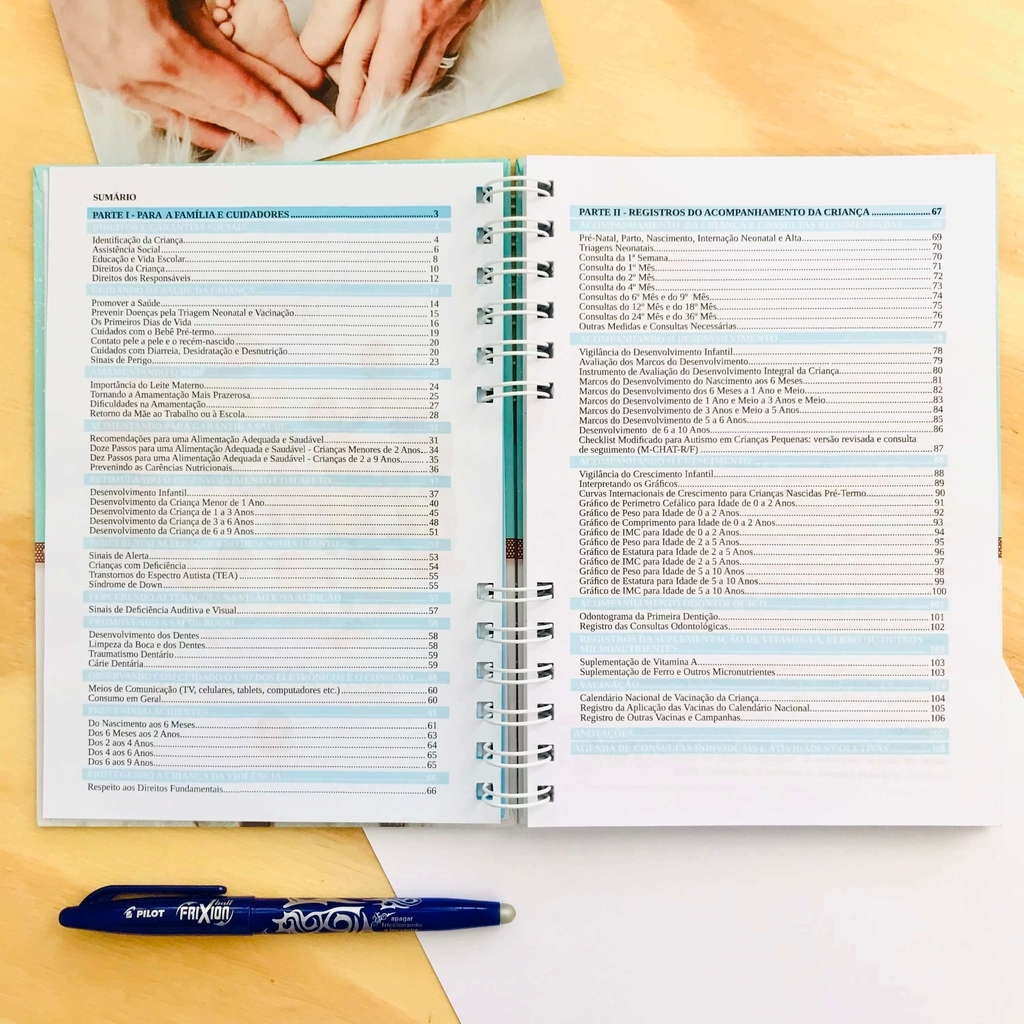 SUMÁRIO
PARTE I - PARA A FAMÍLIA E CUIDADORES 3
DIREITOS E GARANTIAS SOCIAIS 4
Identificação da Criança 4
Assistência Social 6
Educação e Vida Escolar 8
Direitos da Criança 10
Direitos dos Responsáveis 12
CUIDANDO DA SAÚDE DA CRIANÇA
Promover a Saúde 14
Prevenir Doenças pela Triagem Neonatal e Vacinação 15
Os Primeiros Dias de Vida 16
Cuidados com o Bebê Pré-termo 19
Contato pele a pele e o recém-nascido 20
Cuidados com Diarreia, Desidratação e Desnutrição 20
Sinais de Perigo 23
AMAMENTANDO O BEBÊ
Importância do Leite Materno 24
Tornando a Amamentação Mais Prazerosa 25
Dificuldades na Amamentação 27
Retorno da Mãe ao Trabalho ou à Escola 28
ALIMENTANDO PARA GARANTIR A SAÚDE
Recomendações para uma Alimentação Adequada e Saudável 31
Doze Passos para uma Alimentação Adequada e Saudável - Crianças Menores de 2 Anos 34
Dez Passos para uma Alimentação Adequada e Saudável - Crianças de 2 a 9 Anos 35
Prevenindo as Carências Nutricionais 36
ESTIMULANDO O DESENVOLVIMENTO COM AFETO 37
Desenvolvimento Infantil 37
Desenvolvimento da Criança Menor de 1 Ano 40
Desenvolvimento da Criança de 1 a 3 Anos 45
Desenvolvimento da Criança de 3 a 6 Anos 48
Desenvolvimento da Criança de 6 a 9 Anos 51
PERCEBENDO ALTERAÇÕES NO DESENVOLVIMENTO
Sinais de Alerta 53
Crianças com Deficiência 54
Transtornos do Espectro Autista (TEA) 55
Síndrome de Down 55
PERCEBENDO ALTERAÇÕES NA VISÃO E NA AUDIÇÃO 57
Sinais de Deficiência Auditiva e Visual 57
PROMOVENDO A SAÚDE BUCAL
Desenvolvimento dos Dentes 58
Limpeza da Boca e dos Dentes 58
Traumatismo Dentário 59
Cárie Dentária 59
OBSERVANDO COM CUIDADO O USO DOS ELETRÔNICOS E O CONSUMO
Meios de Comunicação (TV, celulares, tablets, computadores etc.) 60
Consumo em Geral 60
PREVENINDO ACIDENTES
Do Nascimento aos 6 Meses 61
Dos 6 Meses aos 2 Anos 63
Dos 2 aos 4 Anos 64
Dos 4 aos 6 Anos 65
Dos 6 aos 9 Anos 65
PROTEGENDO A CRIANÇA DA VIOLÊNCIA 66
Respeito aos Direitos Fundamentais 66
PARTE II - REGISTROS DO ACOMPANHAMENTO DA CRIANÇA 67
ACOMPANHAMENTO DA CRIANÇA E CONSULTAS RECOMENDADAS
Pré-Natal, Parto, Nascimento, Internação Neonatal e Alta 69
Triagens Neonatais 70
Consulta da 1ª Semana 70
Consulta do 1º Mês 71
Consulta do 2º Mês 72
Consulta do 4º Mês 73
Consultas do 6º Mês e do 9º Mês 74
Consultas do 12º Mês e do 18º Mês 75
Consultas do 24º Mês e do 36º Mês 76
Outras Medidas e Consultas Necessárias 77
ACOMPANHANDO O DESENVOLVIMENTO 78
Vigilância do Desenvolvimento Infantil 78
Avaliação dos Marcos do Desenvolvimento 79
Instrumento de Avaliação do Desenvolvimento Integral da Criança 80
Marcos do Desenvolvimento do Nascimento aos 6 Meses 81
Marcos do Desenvolvimento dos 6 Meses a 1 Ano e Meio 82
Marcos do Desenvolvimento de 1 Ano e Meio a 3 Anos e Meio 83
Marcos do Desenvolvimento de 3 Anos e Meio a 5 Anos 84
Marcos do Desenvolvimento de 5 a 6 Anos 85
Desenvolvimento de 6 a 10 Anos 86
Checklist Modificado para Autismo em Crianças Pequenas: versão revisada e consulta
de seguimento (M-CHAT-R/F) 87
ACOMPANHANDO O CRESCIMENTO
Vigilância do Crescimento Infantil 88
Interpretando os Gráficos 89
Curvas Internacionais de Crescimento para Crianças Nascidas Pré-Termo 90
Gráfico de Perímetro Cefálico para Idade de 0 a 2 Anos 91
Gráfico de Peso para Idade de 0 a 2 Anos 92
Gráfico de Comprimento para Idade de 0 a 2 Anos 93
Gráfico de IMC para Idade de 0 a 2 Anos 94
Gráfico de Peso para Idade de 2 a 5 Anos 95
Gráfico de Estatura para Idade de 2 a 5 Anos 96
Gráfico de IMC para Idade de 2 a 5 Anos 97
Gráfico de Peso para Idade de 5 a 10 Anos 98
Gráfico de Estatura para Idade de 5 a 10 Anos 99
Gráfico de IMC para Idade de 5 a 10 Anos 100
ACOMPANHAMENTO ODONTOLÓGICO 101
Odontograma da Primeira Dentição 101
Registro das Consultas Odontológicas 102
REGISTROS DA SUPLEMENTAÇÃO DE VITAMINA A, FERRO E OUTROS
MICRONUTRIENTES 103
Suplementação de Vitamina A 103
Suplementação de Ferro e Outros Micronutrientes 103
VACINAÇÃO
Calendário Nacional de Vacinação da Criança 104
Registro da Aplicação das Vacinas do Calendário Nacional 105
Registro de Outras Vacinas e Campanhas 106
ANOTAÇÕES
AGENDA DE CONSULTAS INDIVIDUAIS E ATIVIDADES COLETIVAS
PILOT FRIXION ball
apagar
friccionando